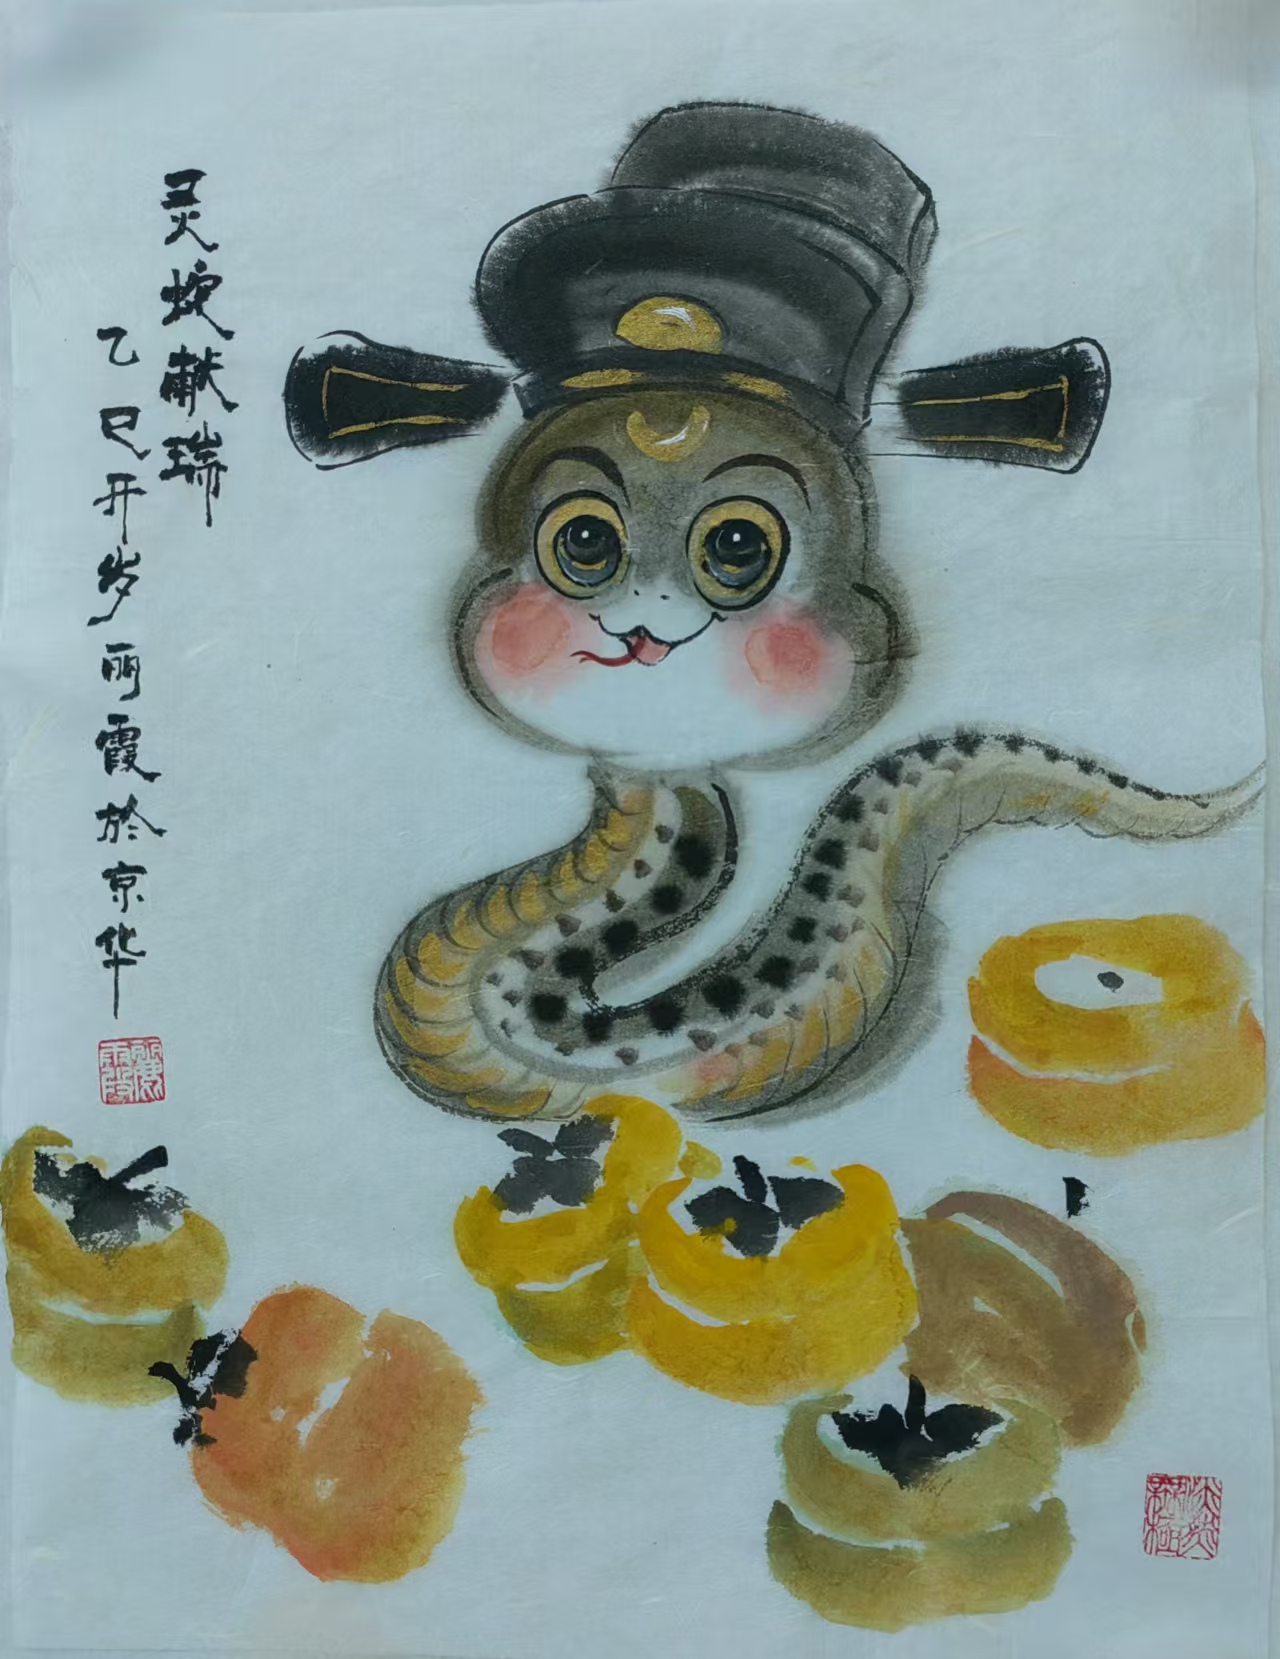 灵蛇献瑞
乙巳开岁丽霞於京华